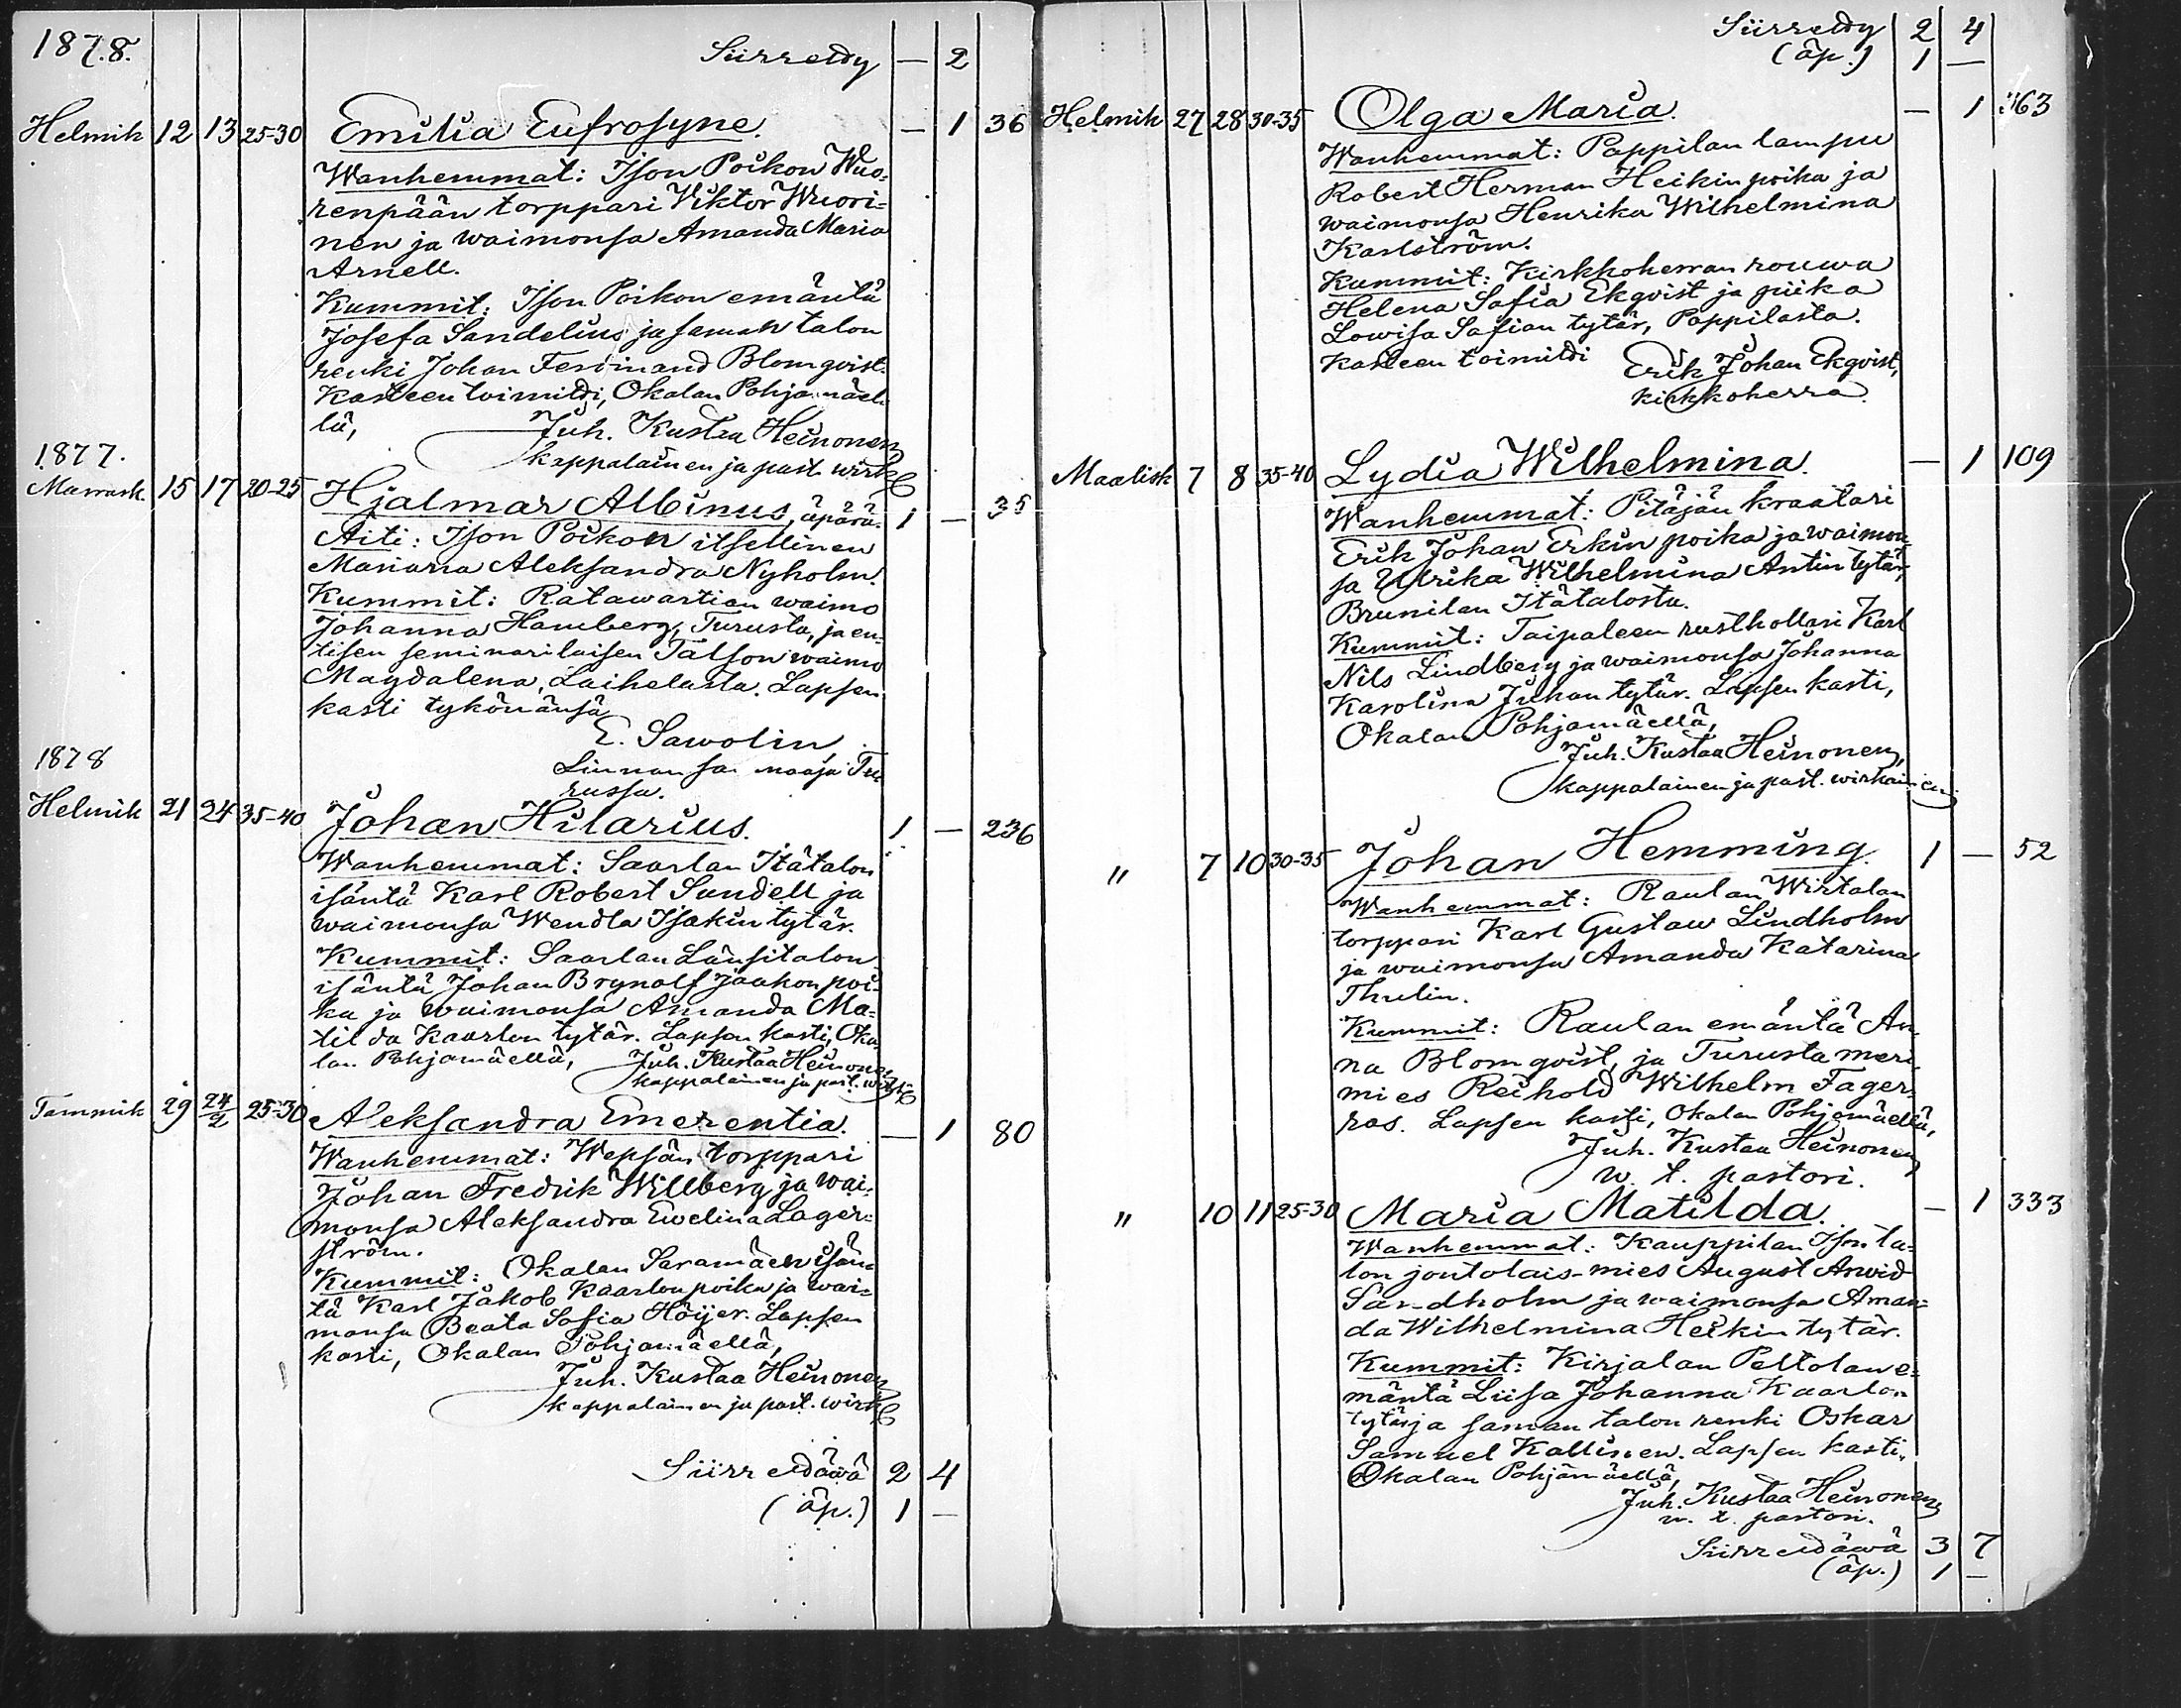 1878.
Siirretty — 2
Helmik 12 13 25-30 Emilia Eufrosyne. — 1 36
Wanhemmat: Ison Poikon Wuo=
renpään torppari Viktor Wuori=
nen ja waimonsa Amanda Maria
Arnell.
Kummit: Ison Poikon emäntä
Josefa Sandelius ja saman talon
renki Johan Ferdinand Blomqvist.
Kasteen toimitti, Okalan Pohjamäel-
lä,
Juh. Kustaa Heinonen
kappalainen ja past. wirk
1877.
Marrask. 15 17 20-25 Hjalmar Albinus, äpärä. 1 — 35
Äiti: Ison Poikon itsellinen
Mariana Aleksandra Nyholm.
Kummit: Ratawartian waimo
Johanna Hamberg, Turusta, ja en=
tisen seminarilaisen Talson waimo
Magdalena, Laihelasta. Lapsen
kasti tykönänsä
E. Sawolin,
Linnan saarnaaja Tu
russa.
1878
Helmik 21 24 35-40 Johan Hilarius. 1 — 236
Wanhemmat: Saarlan Itätalon
isäntä Karl Robert Sundell ja
waimonsa Wendla Isakin tytär.
Kummit: Saarlan Länsitalon
isäntä Johan Brynolf Jaakon poi-
ka ja waimonsa Amanda Ma=
tilda Kaarlon tytär. Lapsen kasti, Oka
lan Pohjamäellä, Juh. Kustaa Heinonen,
kappalainen ja past. wirk
Tammik 29 24/2 25-30 Aleksandra Emerentia. — 1 80
Wanhemmat: Wepsän torppari
Johan Fredrik Willberg ja wai=
monsa Aleksandra Ewelina Lager=
ström.
Kummit: Okalan Saramäen isän=
tä Karl Jakob Kaarlon poika ja wai=
monsa Beata Sofia Höijer. Lapsen
kasti, Okalan Pohjamäellä,
Juh. Kustaa Heinonen
kappalainen ja past. wirk
Siirrettäwä 2 4
(äp.) 1 —
Siirretty 2 4
(äp.) 1 —
Helmik 27 28 30-35 Olga Maria. — 1 363
Wanhemmat: Pappilan lampu
Robert Herman Heikin poika ja
waimonsa Henrika Wilhelmina
Karlström.
Kummit: Kirkkoherran rouwa
Helena Sofia Ekqvist ja piika
Lowisa Sofian tytär, Pappilasta.
Kasteen toimitti Erik Johan Ekqvist,
kirkkoherra.
Maalisk 7 8 35-40 Lydia Wilhelmina. — 1 109
Wanhemmat: Pitäjän kraatari
Erik Johan Erkin poika ja waimon-
sa Ulrika Wilhelmina Antin tytär,
Brunilan Itätalosta.
Kummit: Taipaleen rusthollari Karl
Nils Lindberg ja waimonsa Johanna
Karolina Juhan tytär. Lapsen kasti,
Okalan Pohjamäellä,
Juh. Kustaa Heinonen,
kappalainen ja past. wirkainen
" 7 10 30-35 Johan Hemming. 1 — 52
Wanhemmat: Raulan Wirtalan
torppari Karl Gustaw Lindholm
ja waimonsa Amanda Katarina
Thulin.
Kummit: Raulan emäntä An-
na Blomqvist, ja Turusta meri
mies Reihold Wilhelm Fager=
ros. Lapsen kasti, Okalan Pohjamäellä,
Juh. Kustaa Heinonen
w. t. pastori.
" 10 11 25-30 Maria Matilda. — 1 333
Wanhemmat: Kauppilan Ison ta=
lon joutolais-mies August Arwid
Sandholm ja waimonsa Aman=
da Wilhelmina Heikin tytär.
Kummit: Kirjalan Peltolan e=
mäntä Liisa Johanna Kaarlon
tytär ja saman talon renki Oskar
Samuel Kallinen. Lapsen kasti,
Okalan Pohjamäellä,
Juh. Kustaa Heinonen,
w. t. pastori.
Siirrettäwä 3 7
(äp.) 1 —